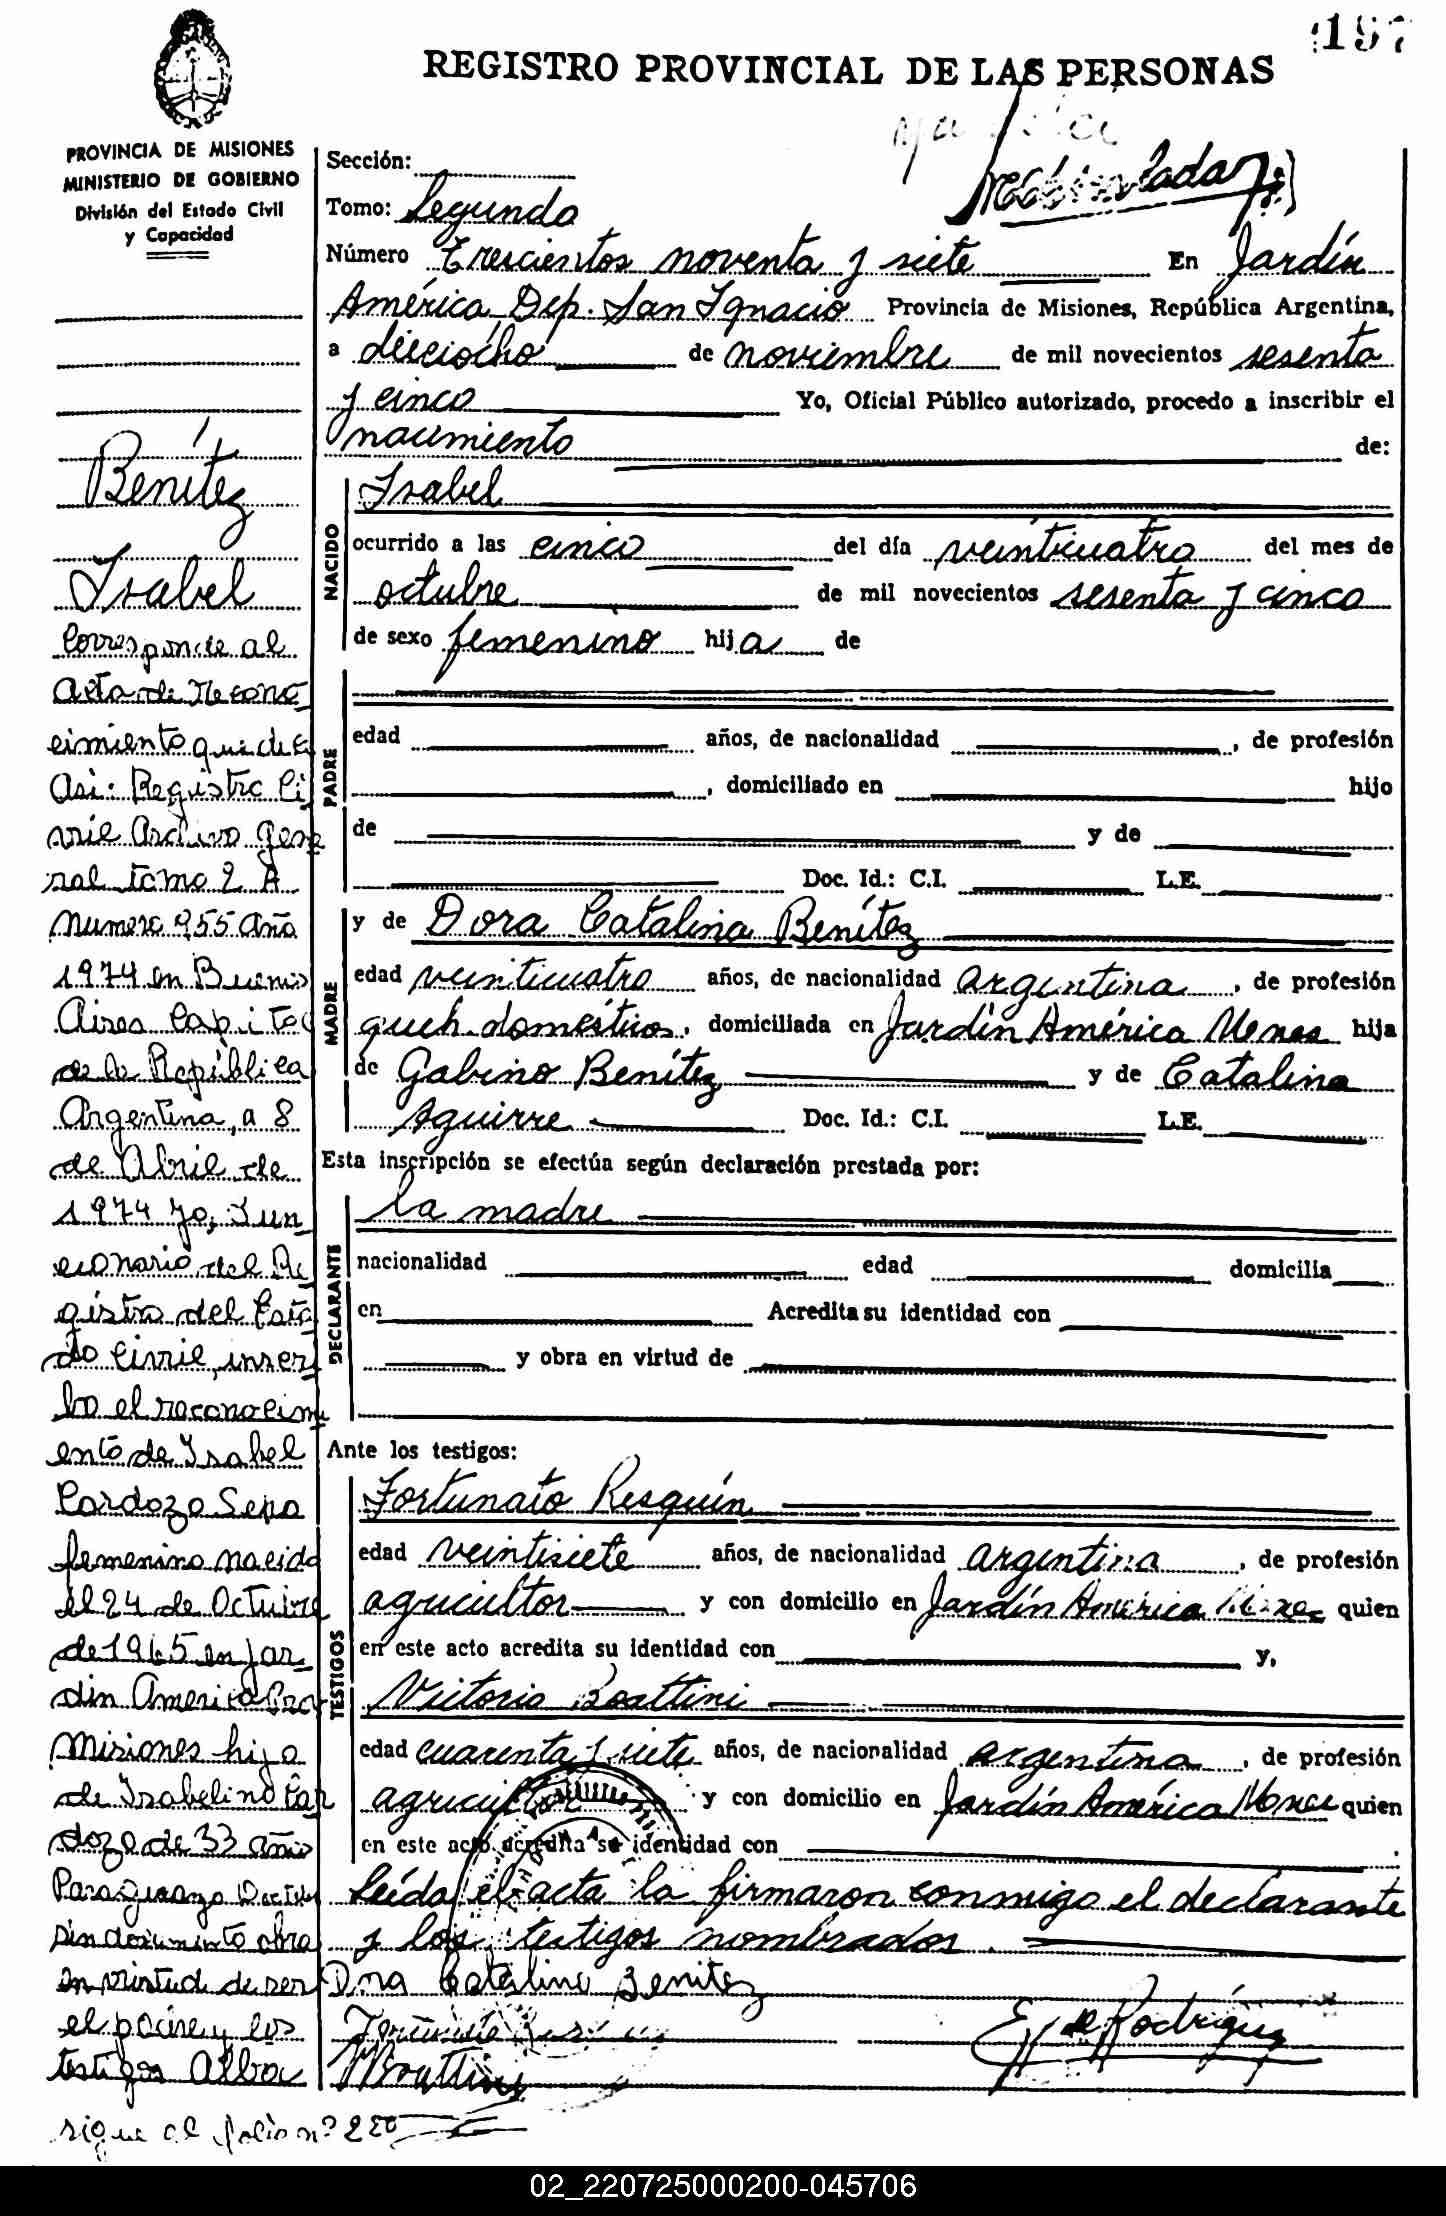 197
REGISTRO PROVINCIAL DE LAS PERSONAS
PROVINCIA DE MISIONES
MINISTERIO DE GOBIERNO
División del Estado Civil
y Capacidad
Sección:
Tomo: Segundo
Número Trescientos noventa y siete En Jardín
América Dep. San Ignacio Provincia de Misiones, República Argentina,
a dieciocho de noviembre de mil novecientos sesenta
y cinco Yo, Oficial Público autorizado, procedo a inscribir el
nacimiento de:
NACIDO
Isabel
ocurrido a las cinco del día veinticuatro del mes de
octubre de mil novecientos sesenta y cinco
de sexo femenino hija de
PADRE
edad años, de nacionalidad , de profesión
, domiciliado en hijo
de y de
Doc. Id.: C.I. L.E.
MADRE
y de Dora Catalina Benítez
edad veinticuatro años, de nacionalidad argentina , de profesión
queh. domésticos, domiciliada en Jardín América Mnes hija
de Gabino Benítez y de Catalina
Aguirre Doc. Id.: C.I. L.E.
Esta inscripción se efectúa según declaración prestada por:
DECLARANTE
la madre
nacionalidad edad domicilia
en Acredita su identidad con
y obra en virtud de
Ante los testigos:
TESTIGOS
Fortunato Resquín
edad veintisiete años, de nacionalidad argentina , de profesión
agricultor y con domicilio en Jardín América quien
en este acto acredita su identidad con y,
Victorio Boattini
edad cuarenta y siete años, de nacionalidad argentina , de profesión
agricultor y con domicilio en Jardín América quien
en este acto acredita su identidad con .
Leída el acta la firmaron conmigo el declarante
y los testigos nombrados.
Dora Catalina Benitez
Boattini
Rodríguez
Benítez
Isabel
Corresponde al
Acta de Recono
cimiento que dice
Asi: Registro Ci
vil Archivo gene
ral tomo 2 A
Numero 955 Año
1974 en Buenos
Aires Capital
de la República
Argentina, a 8
de Abril de
1974 yo, Fun
cionario del Re
gistro del Esta
do Civil, inscri
bo el reconocimi
ento de Isabel
Cardozo Sexo
femenino nacida
el 24 de Octubre
de 1965 en Jar
din America Prov
Misiones hija
de Isabelino Car
dozo de 33 años
Paraguayo
sin documento obra
en virtud de ser
el padre y los
testigos Alba
sigue al folio nº 220
02_220725000200-045706